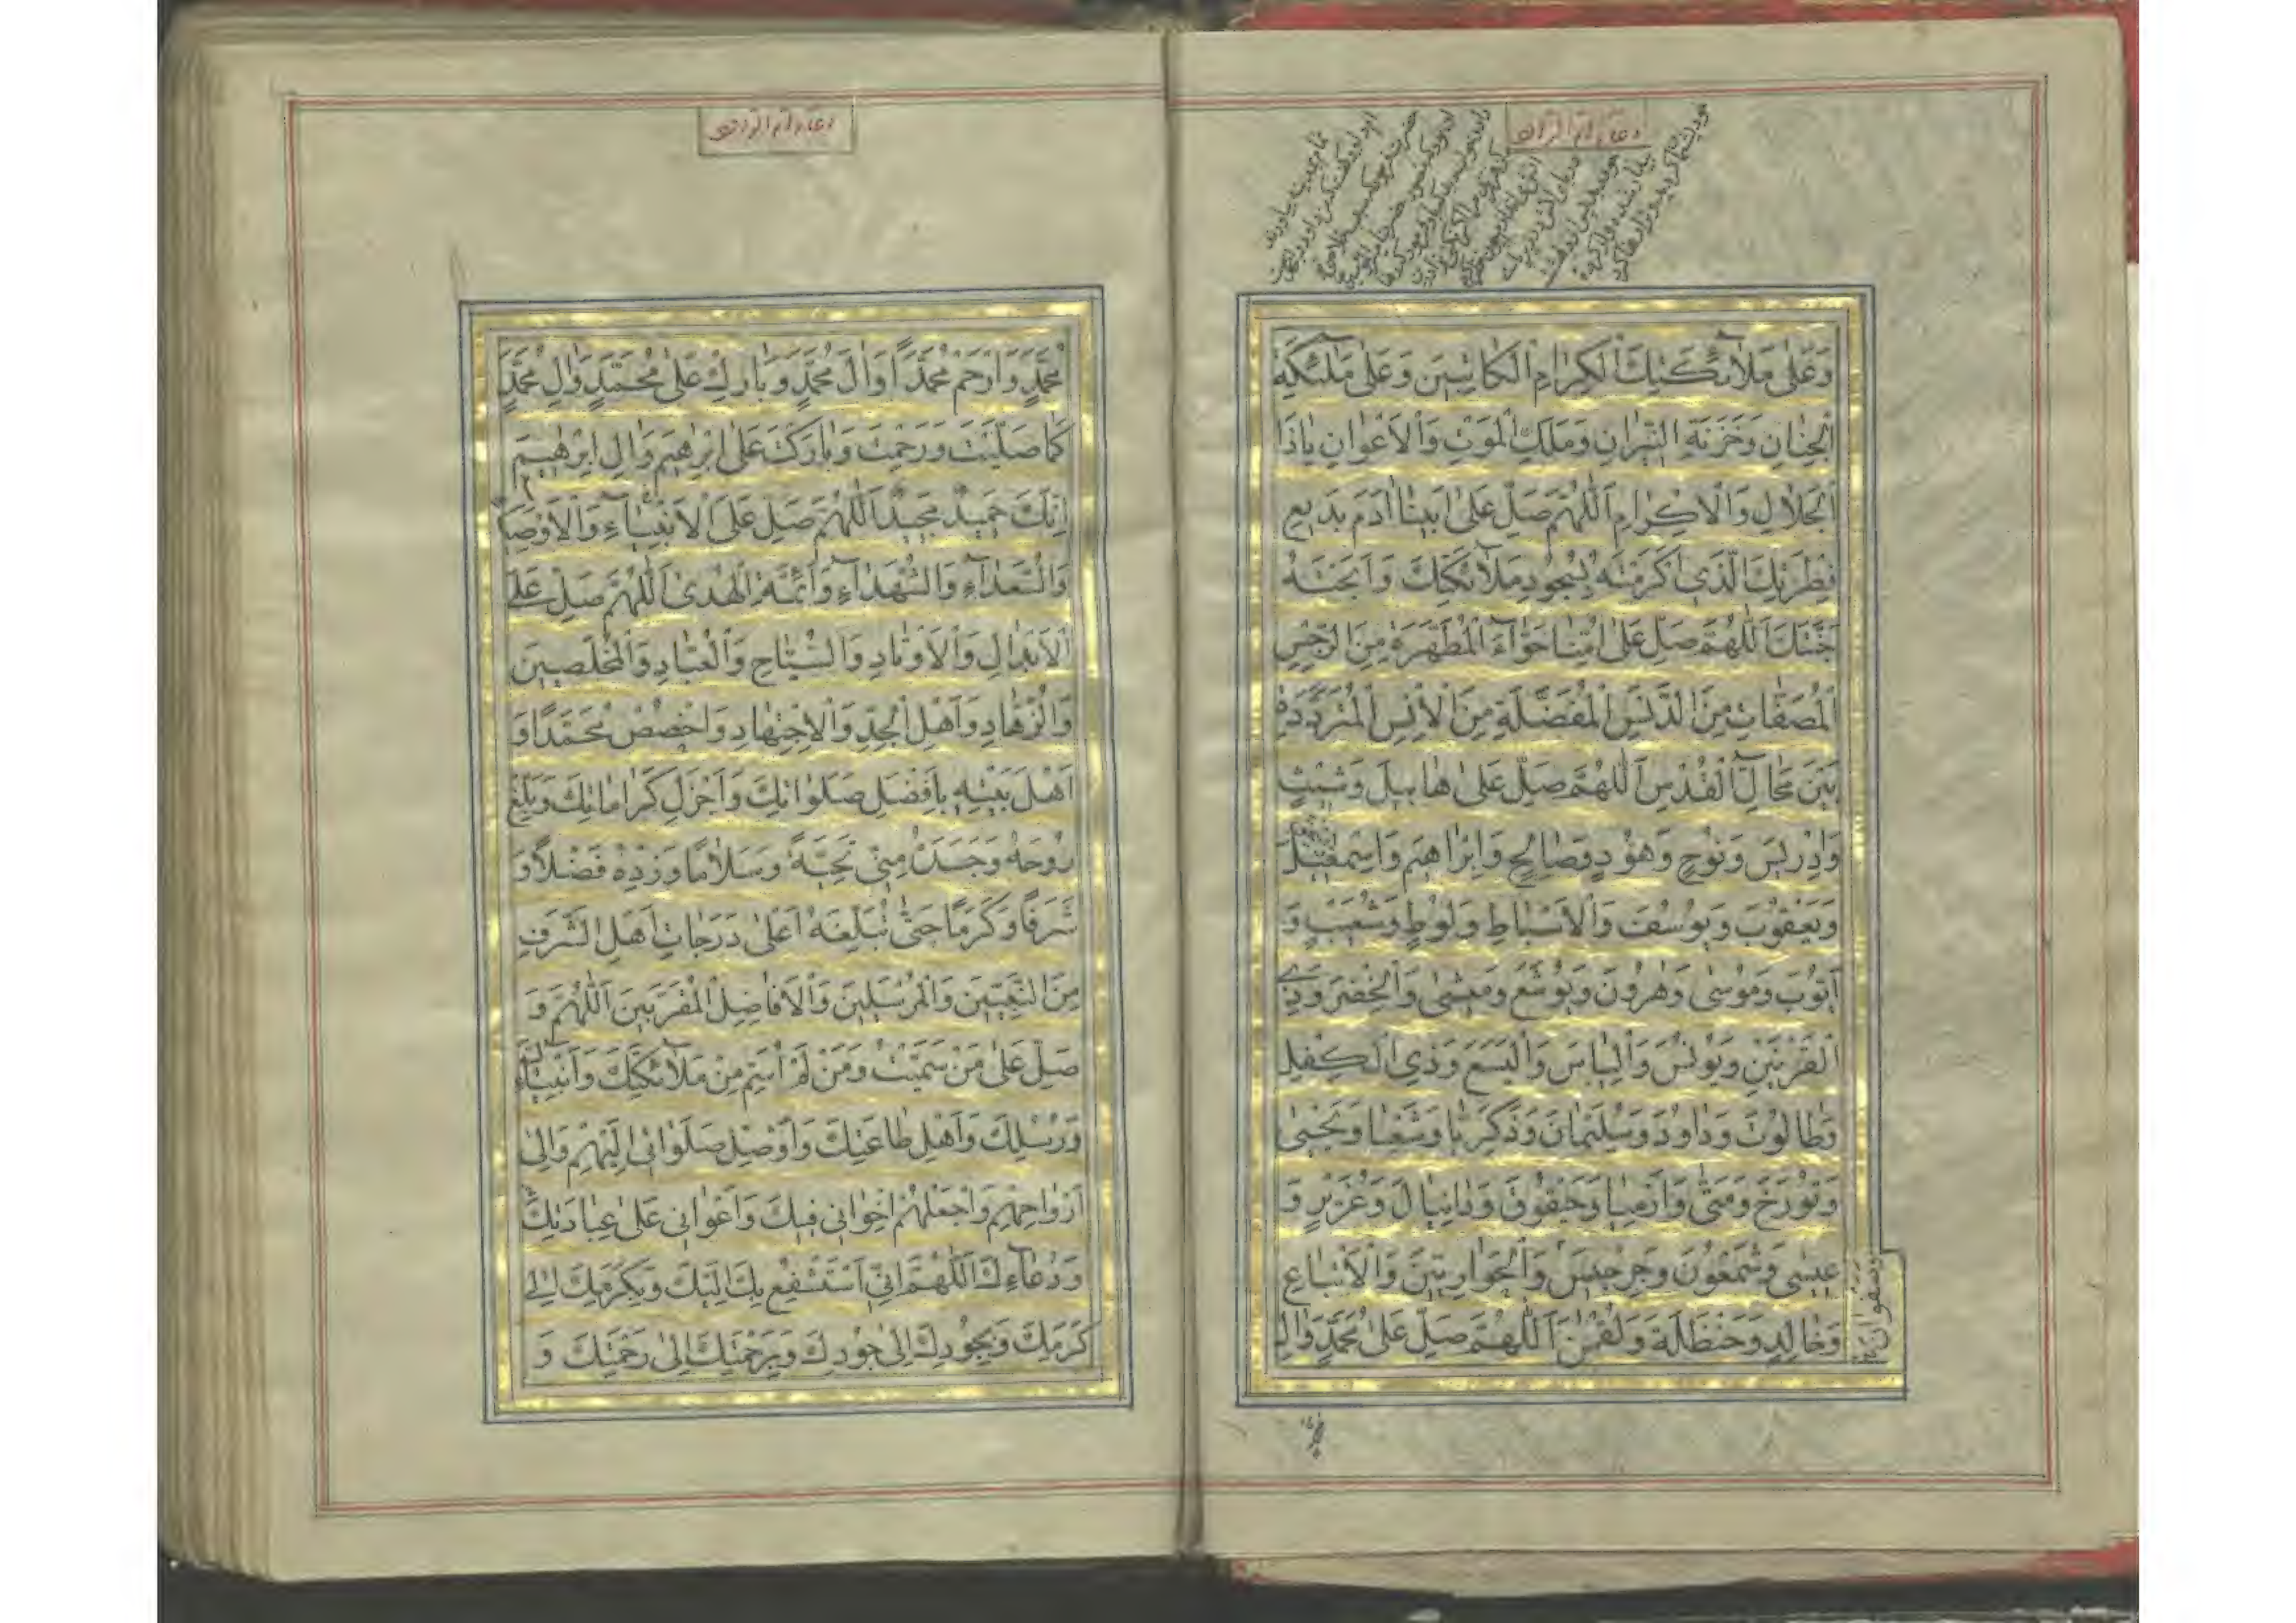 وَعَلٰى مَلاۤئِكَتِكَ الْكِرامِ الْكاتِبينَ وَعَلٰى مَلٰئِكَةِ
الْجِنانِ وَخَزَنَةِ النّيرانِ وَمَلَكِ الْمَوْتِ وَالْاَعْوانِ ياذَا
الْجَلالِ وَالْاِكْرامِ اَللّٰهُمَّ صَلِّ عَلٰى اَبينا ادَمَ بَديعِ
فِطْرَتِكَ الَّذي كَرَّمْتَهُ بِسُجُودِ مَلاۤئِكَتِكَ وَاَبَحْتَهُ
جَنَّتَكَ اَللّٰهُمَّ صَلِّ عَلٰى اُمِّنا حَوّاۤءَ الْمُطَهَّرَةِ مِنَ الرِّجْسِ
الْمُصَفّاتِ مِنَ الدَّنَسِ الْمُفَضَّلَةِ مِنَ الْاِنْسِ الْمُتَرَدِّدَةِ
بَيْنَ مَحالِّ الْقُدْسِ اَللّٰهُمَّ صَلِّ عَلٰى هابيلَ وَشَيْثٍ
وَاِدْريسَ وَنُوحٍ وَهُودٍ وَصالِحٍ وَاِبْراهيمَ وَاِسْمٰعيلَ
وَيَعْقُوبَ وَيُوسُفَ وَالْاَسْباطِ وَلُوطٍ وَشُعَيْبٍ وَ
اَيُّوبَ وَمُوسٰى وَهٰرُونَ وَيُوشَعَ وَميشٰى وَالْخِضْرِ وَذِي
الْقَرْنَيْنِ وَيُونُسَ وَاِلْياسَ وَالْيَسَعَ وَذِي الْكِفْلِ
وَطالُوتَ وَداوُدَ وَسُلَيْمانَ وَذَكَرِيّا وَشَعْيا وَيَحْيٰى
وَتُورَخَ وَمَتّٰى وَاَرْمِيا وَحَيْقُوقَ وَدانِيالَ وَعُزَيْرٍ وَ
عيسٰى وَشَمْعُونَ وَجِرْجيسَ وَالْحَوارِيّينَ وَالْاَتْباعِ
وَخالِدٍ وَحَنْظَلَةَ وَلُقْمٰنَ اَللّٰهُمَّ صَلِّ عَلٰى مُحَمَّدٍ وَالِ
مُحَمَّدٍ وَارْحَمْ مُحَمَّدًا وَالَ مُحَمَّدٍ وَبارِكْ عَلٰى مُحَمَّدٍ وَالِ مُحَمَّدٍ
كَما صَلَّيْتَ وَرَحِمْتَ وَبارَكْتَ عَلٰى اِبْرٰهيمَ وَالِ اِبْرٰهيمَ
اِنَّكَ حَميدٌ مَجيدٌ اَللّٰهُمَّ صَلِّ عَلَى الْاَنْبِياۤءِ وَالْاَوْصِياۤءِ
وَالسُّعَداۤءِ وَالشُّهَداۤءِ وَاَئِمَّةِ الْهُدٰى اَللّٰهُمَّ صَلِّ عَلَى
الْاَبْدالِ وَالْاَوْتادِ وَالسُّيّاحِ وَالْعُبّادِ وَالْمُخْلِصينَ
وَالزُّهّادِ وَاَهْلِ الْجِدِّ وَالْاِجْتِهادِ وَاخْصُصْ مُحَمَّدًا وَ
اَهْلَ بَيْتِهِ بِاَفْضَلِ صَلَواتِكَ وَاَجْزَلِ كَراماتِكَ وَبَلِّغْ
رُوحَهُ وَجَسَدَهُ مِنّي تَحِيَّةً وَسَلامًا وَزِدْهُ فَضْلًا وَ
شَرَفًا وَكَرَمًا حَتّٰى تُبَلِّغَهُ اَعْلٰى دَرَجاتِ اَهْلِ الشَّرَفِ
مِنَ النَّبِيّينَ وَالْمُرْسَلينَ وَالْاَفاضِلِ الْمُقَرَّبينَ اَللّٰهُمَّ وَ
صَلِّ عَلٰى مَنْ سَمَّيْتُ وَمَنْ لَمْ اُسَمِّ مِنْ مَلاۤئِكَتِكَ وَاَنْبِياۤئِكَ
وَرُسُلِكَ وَاَهْلِ طاعَتِكَ وَاَوْصِلْ صَلَواتي اِلَيْهِمْ وَاِلٰى
اَرْواحِهِمْ وَاجْعَلْهُمْ اِخْواني فيكَ وَاَعْواني عَلٰى عِبادَتِكَ
وَدُعاۤءِكَ اَللّٰهُمَّ اِنّي اَسْتَشْفِعُ بِكَ اِلَيْكَ وَبِكَرَمِكَ اِلٰى
كَرَمِكَ وَبِجُودِكَ اِلٰى جُودِكَ وَبِرَحْمَتِكَ اِلٰى رَحْمَتِكَ وَ